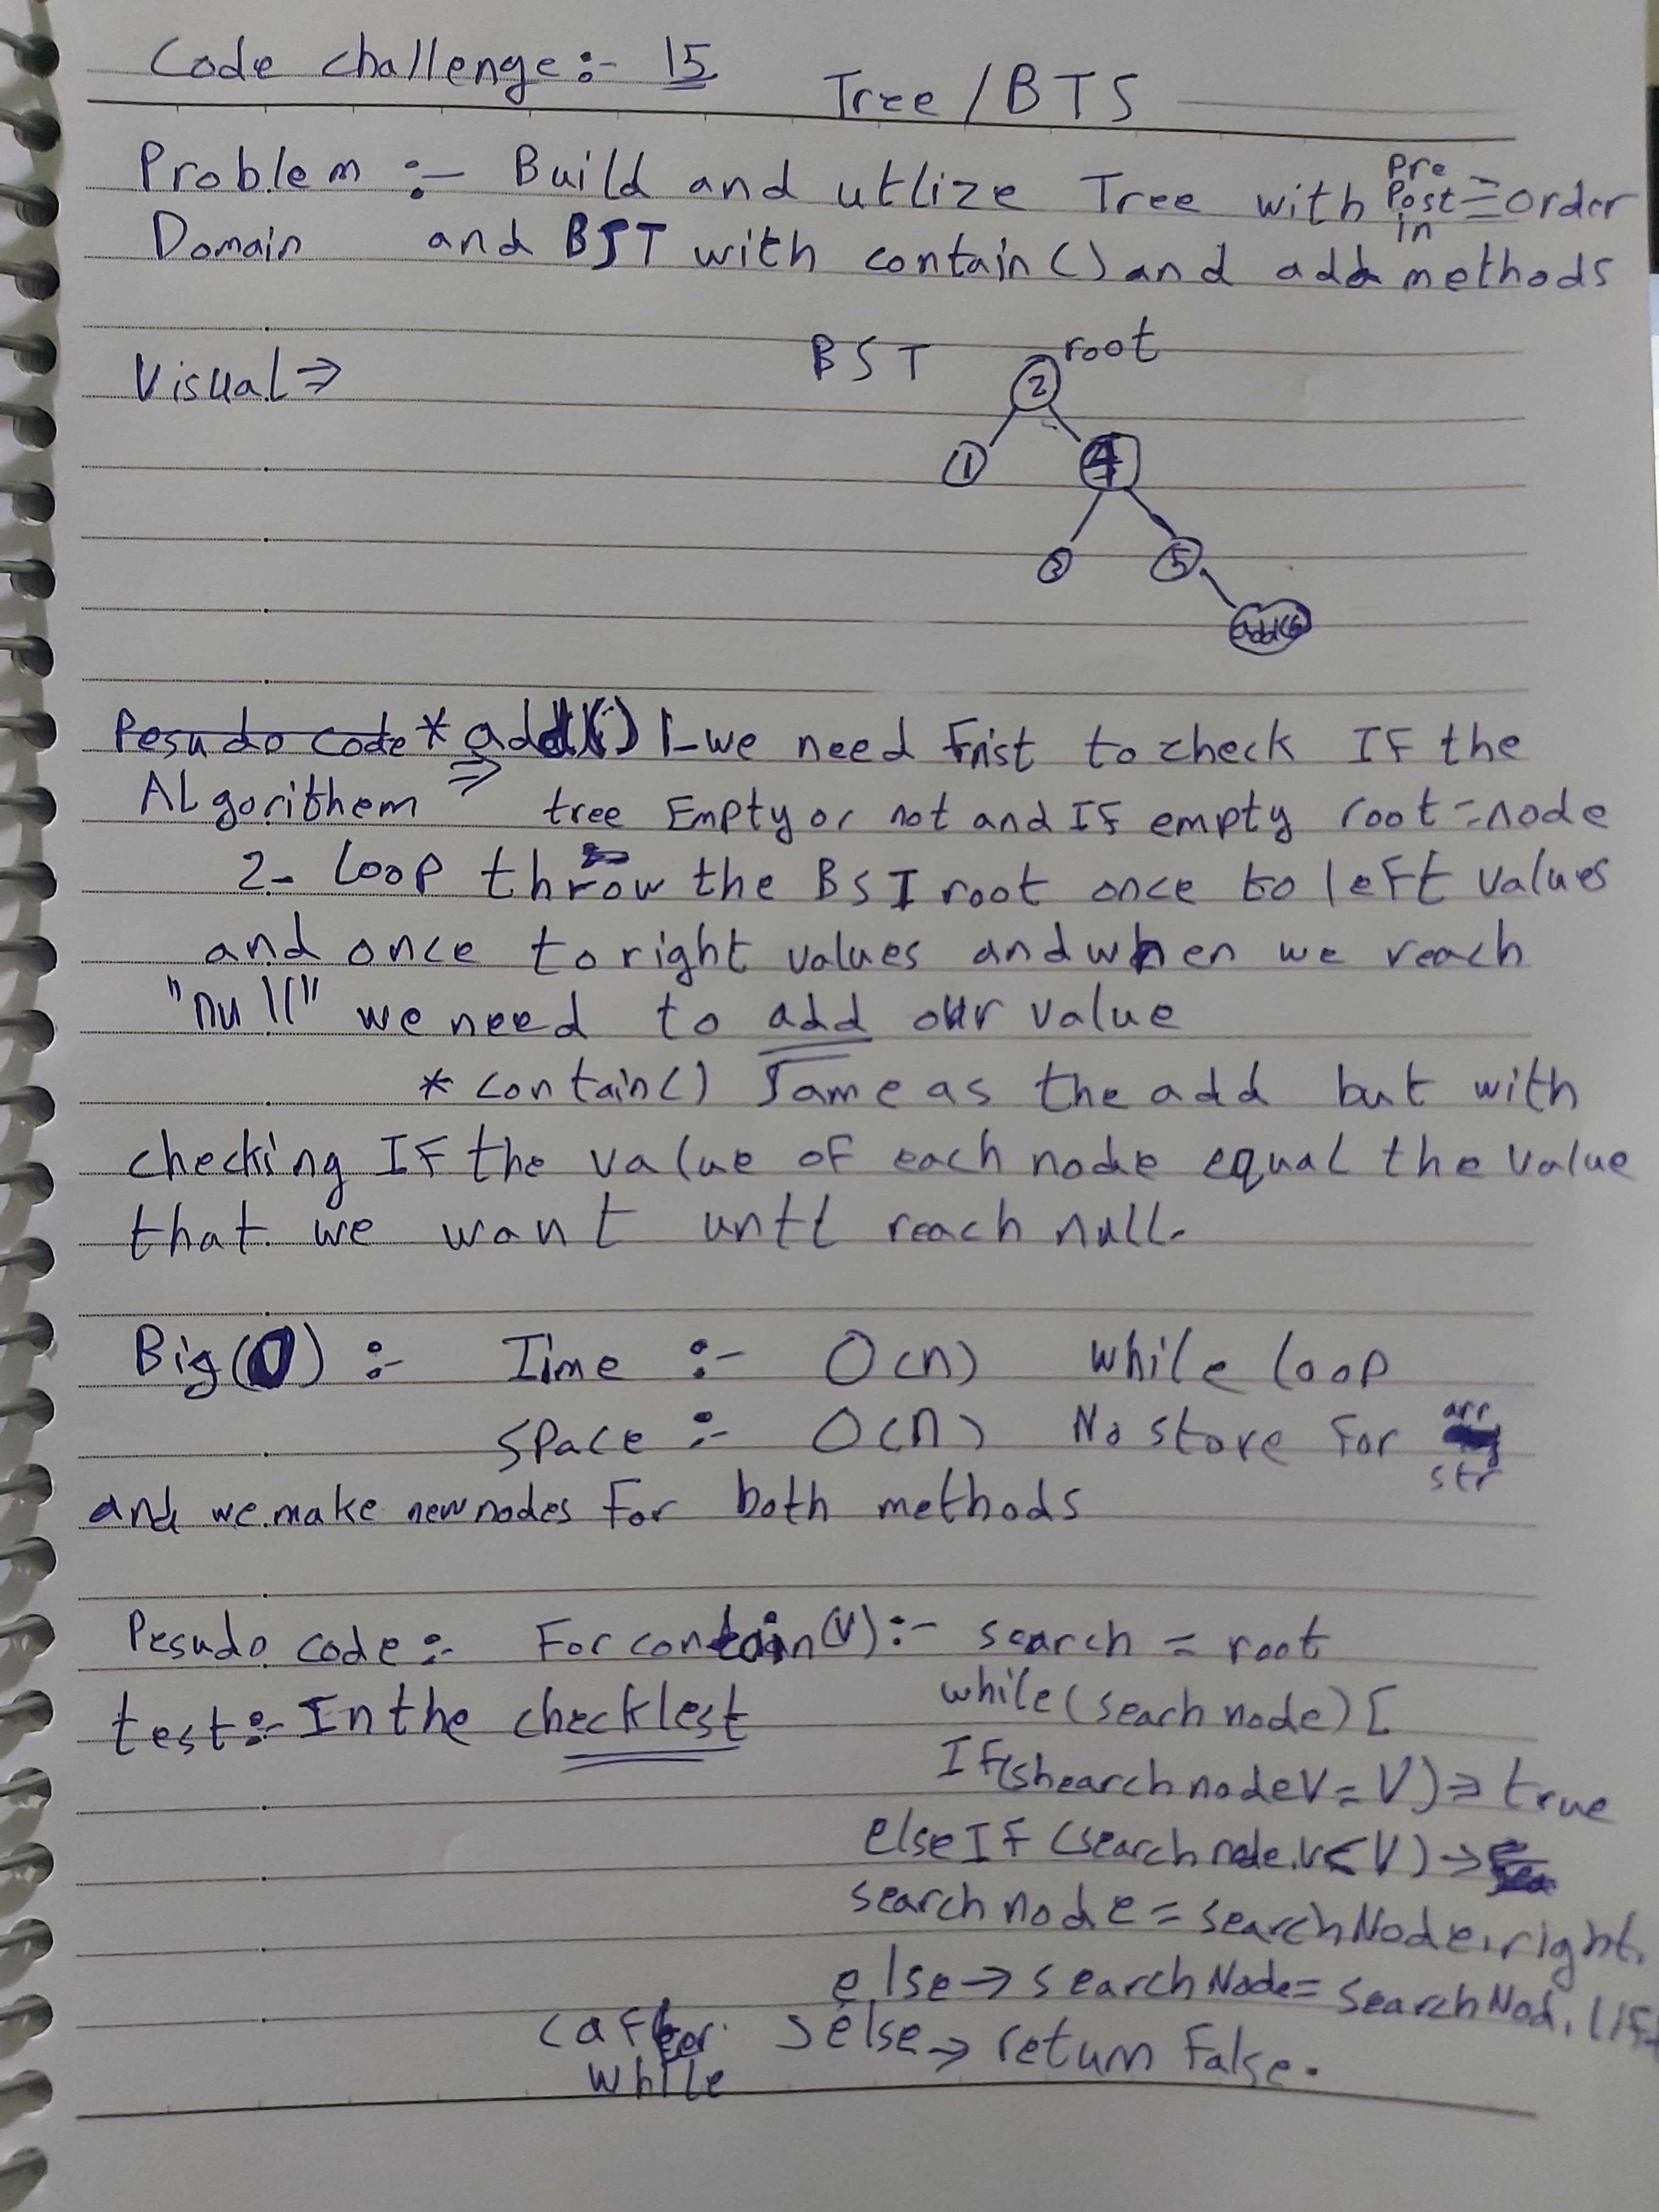 Code challenge:- 15
Tree / BTS
Problem :- Build and utlize Tree with Pre Post in = order
Domain and BST with contain() and add methods
Visual ⇒
BST root
2
1 4
3 5
add(6)
Pesudo code * add() 1- we need Frist to check IF the
ALgorithem ⇒ tree Empty or not and IF empty root = node
2- Loop throw the BST root once to left values
and once to right values and when we reach
"null" we need to add our value
* contain() Same as the add but with
checking IF the value of each node equal the value
that we want untl reach null.
Big(O) :- Time :- O(n) while loop
Space :- O(n) No store For arr str
and we make new nodes For both methods
Pesudo code :- For contain(V) :- search = root
test :- In the checklest
while (seach node) [
IF(shearch node V = V) ⇒ true
else IF (search node.v < V) →
search node = searchNode.right.
else → searchNode = searchNod.lIF
(after while
] else → return False.